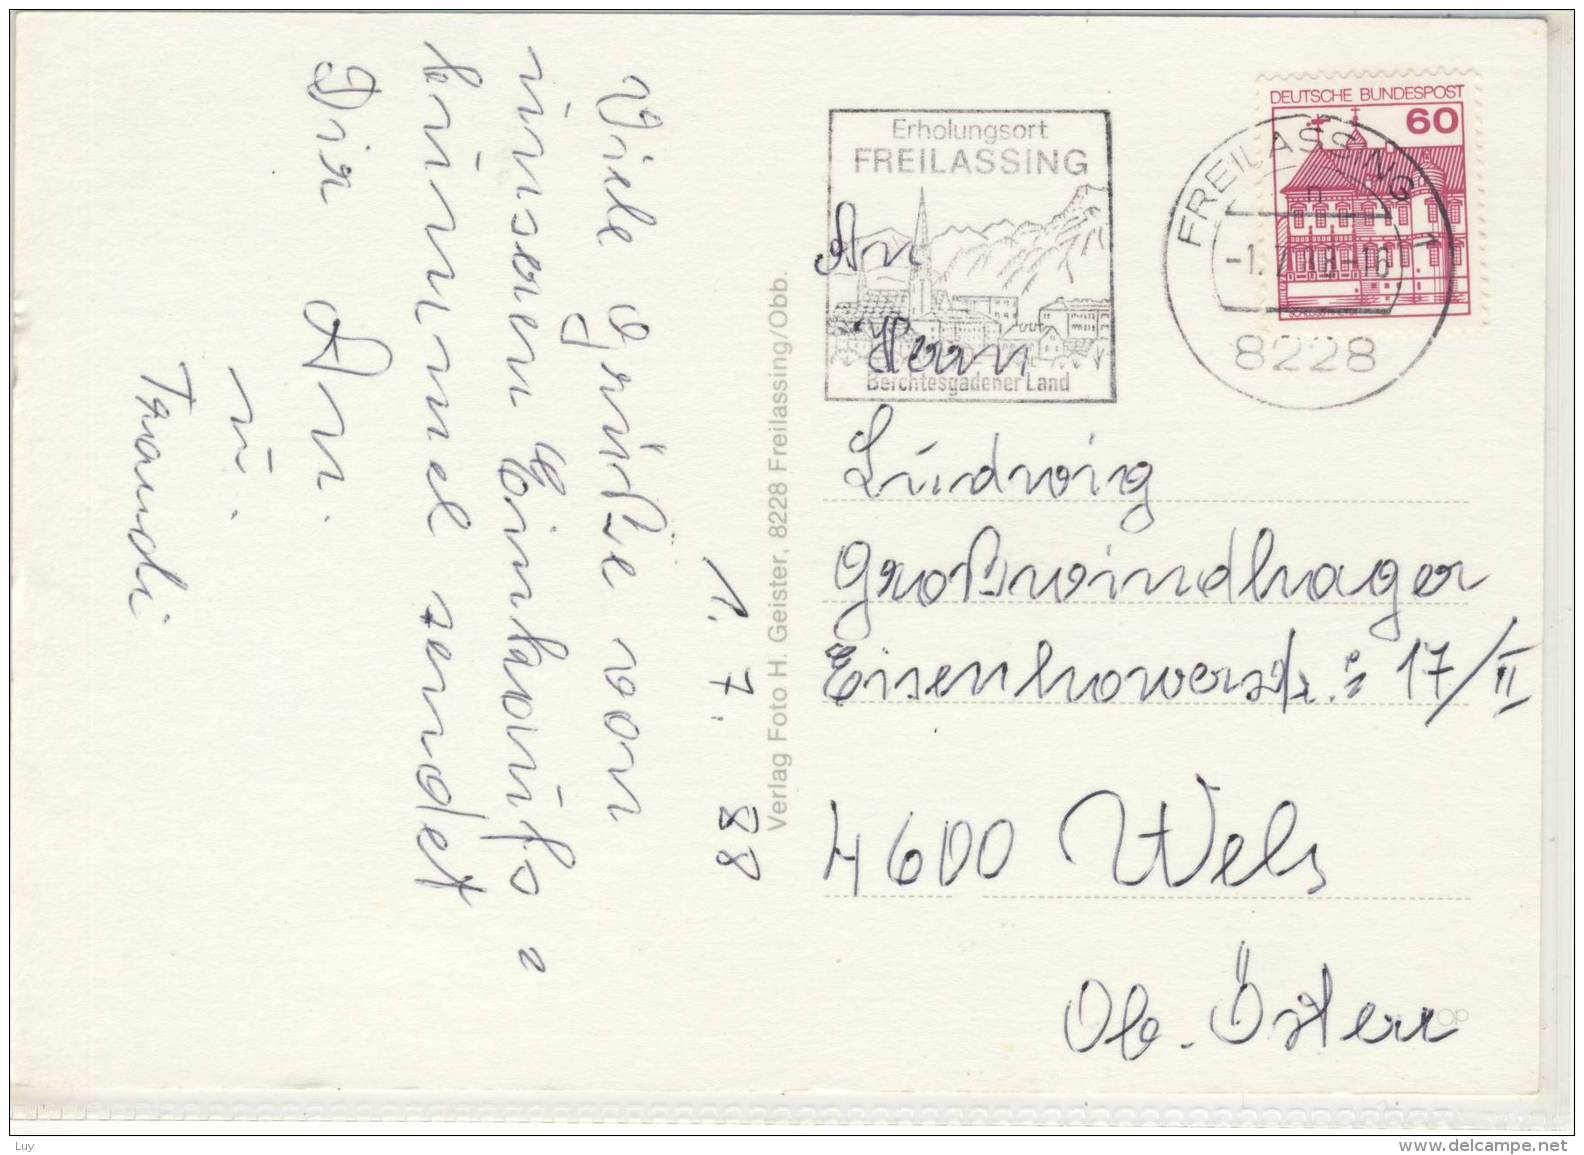 1. 7. 88
Viele Grüße von
unserem Einkaufs =
bummel sendet
Dir Ani
u.
Traudi
Verlag Foto H. Geister, 8228 Freilassing/Obb.
Erholungsort
FREILASSING
Berchtesgadener Land
DEUTSCHE BUNDESPOST
60
FREILASSING 1
8228
An
Herrn
Ludwig
Großwindhager
Eisenhowerstr.: 17/II
4600 Wels
Ob. Österr
Luy
www.delcampe.net